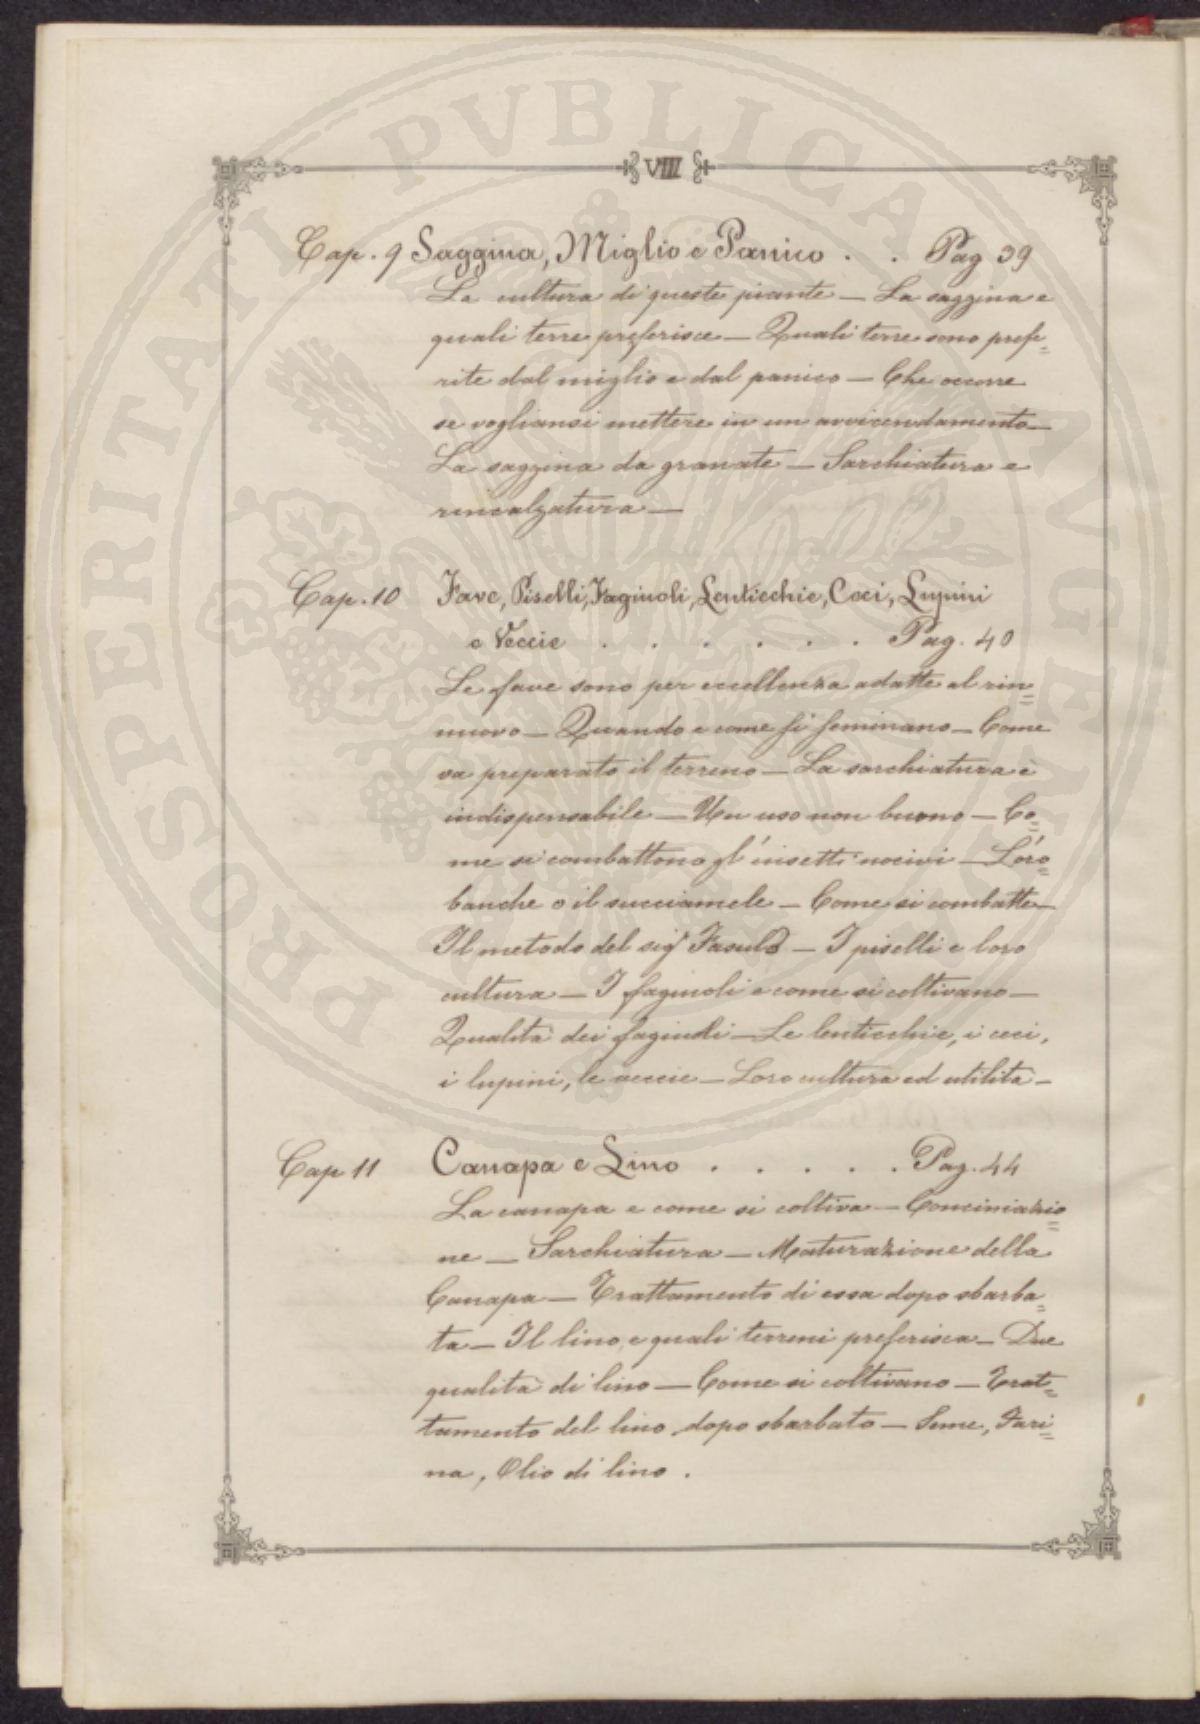 VIII
Cap. 9 Saggina, Miglio e Panico . . Pag 39
La cultura di queste piante — La saggina e
quali terre preferisce — Quali terre sono prefe=
rite dal miglio e dal panico — Che occorre
se vogliansi mettere in un avvicendamento —
La saggina da granate — Sarchiatura e
rincalzatura —
Cap. 10 Fave, Piselli, Fagiuoli, Lenticchie, Ceci, Lupini
e Veccie . . . . . . Pag. 40
Le fave sono per eccellenza adatte al rin=
nuovo — Quando e come si seminano — Come
va preparato il terreno — La sarchiatura è
indispensabile — Un uso non buono — Co=
me si combattono gl'insetti nocivi — L'oro=
banche o il succiamele — Come si combatte —
Il metodo del sigr Fasulo — I piselli e loro
cultura — I fagiuoli e come si coltivano —
Qualità dei fagiuoli — Le lenticchie, i ceci,
i lupini, le veccie — Loro cultura ed utilità —
Cap 11 Canapa e Lino . . . . . Pag. 44
La canapa e come si coltiva — Concimazio=
ne — Sarchiatura — Maturazione della
Canapa — Trattamento di essa dopo sbarba=
ta — Il lino, e quali terreni preferisca — Due
qualità di lino — Come si coltivano — Trat=
tamento del lino dopo sbarbato — Seme, Fari=
na, Olio di lino .
PROSPERITATI PVBLICAE AVGENDAE